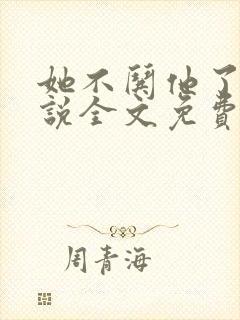 她不关他了
說全文免費
周青海